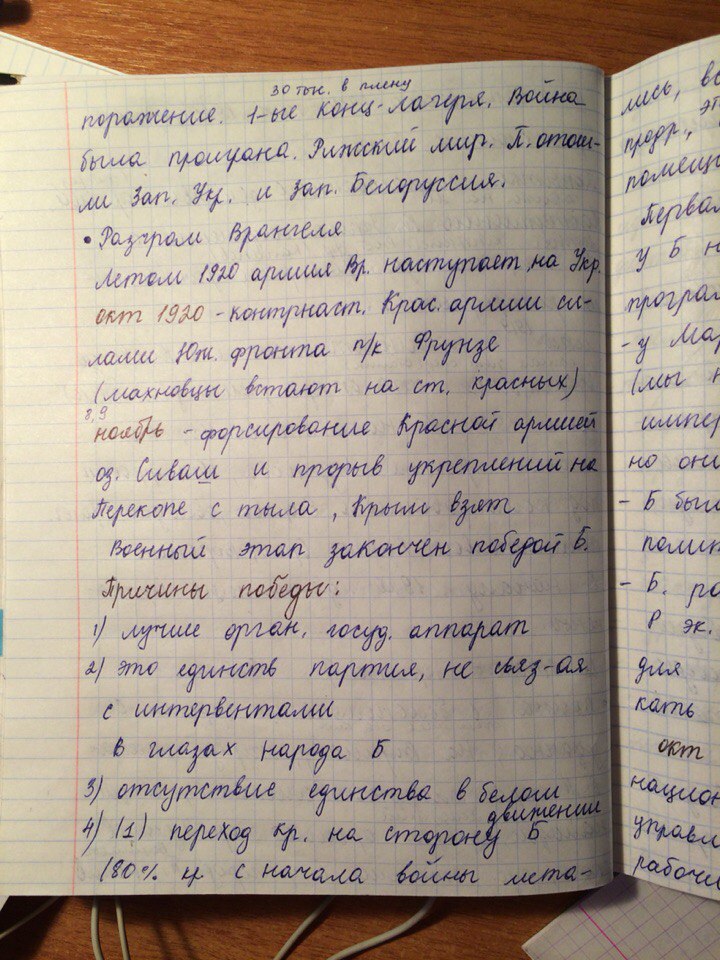 30 тыс. в плену
поражение. 1-ые конц-лагеря. Война
была проиграна. Рижский мир. П. отош-
ли Зап. Укр. и Зап. Белоруссия.
• Разгром Врангеля
Летом 1920 армия Вр. наступает на Укр.
окт 1920 - контрнаст. Крас. армии си-
лами Юж. фронта п/к Фрунзе
(махновцы встают на ст. красных)
8,9
ноябрь - форсирование Красной армией
оз. Сиваш и прорыв укреплений на
Перекопе с тыла, Крым взят
Военный этап закончен победой Б.
Причины победы:
1) лучше орган. госуд. аппарат
2) это единств партия, не связ-ая
с интервентами
в глазах народа Б
3) отсутствие единства в белом
движении
4) (1) переход кр. на сторону Б
(80% кр с начала войны мета-
лись, вс
продр, эт
помещ
Первал
у Б н
програм
- у Мар
(мы н
импер
но они
- Б был
полит
- Б. ра
Р эк.
для
кать
окт
национ
управл
рабоч